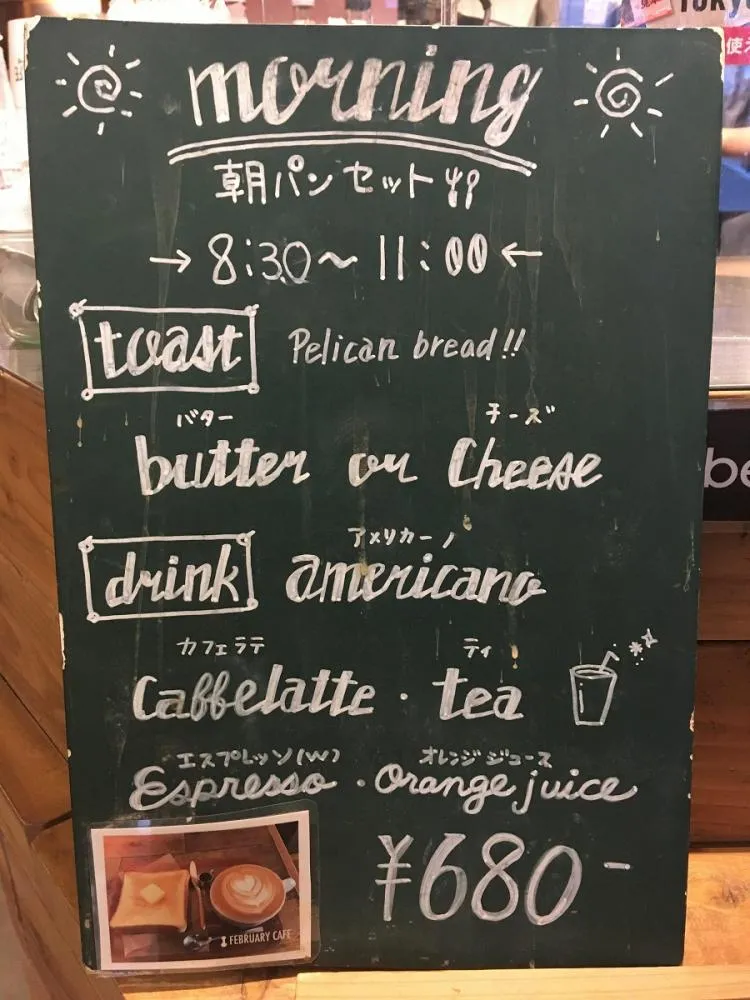 morning
朝パンセット
→ 8:30〜11:00 ←
toast Pelican bread!!
バター チーズ
butter or Cheese
アメリカーノ
drink americano
カフェラテ ティ
Caffelatte・tea
エスプレッソ(W) オレンジジュース
Espresso・Orange juice
¥680-
FEBRUARY CAFE
be